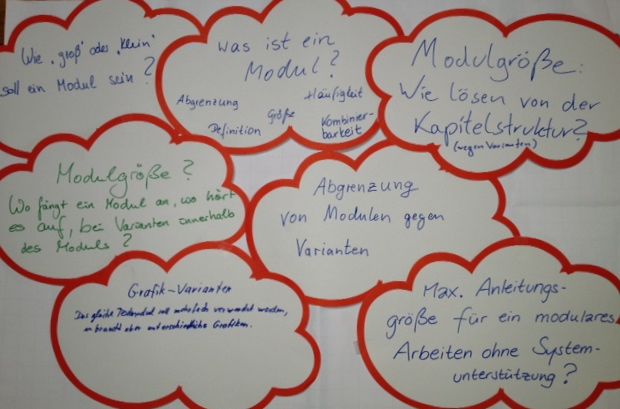 Wie „groß" oder „klein"
soll ein Modul sein?
Was ist ein
Modul?
Abgrenzung
Größe
Häufigkeit
Definition
Kombinier-
barkeit
Modulgröße:
Wie lösen von der
Kapitelstruktur?
(wegen Varianten)
Modulgröße?
Wo fängt ein Modul an, wo hört
es auf, bei Varianten innerhalb
des Moduls?
Abgrenzung
von Modulen gegen
Varianten
Grafik-Varianten
Das gleiche Textmodul soll mehrfach verwendet werden,
es braucht aber unterschiedliche Grafiken.
Max. Anleitungs-
größe für ein modulares
Arbeiten ohne System-
unterstützung?